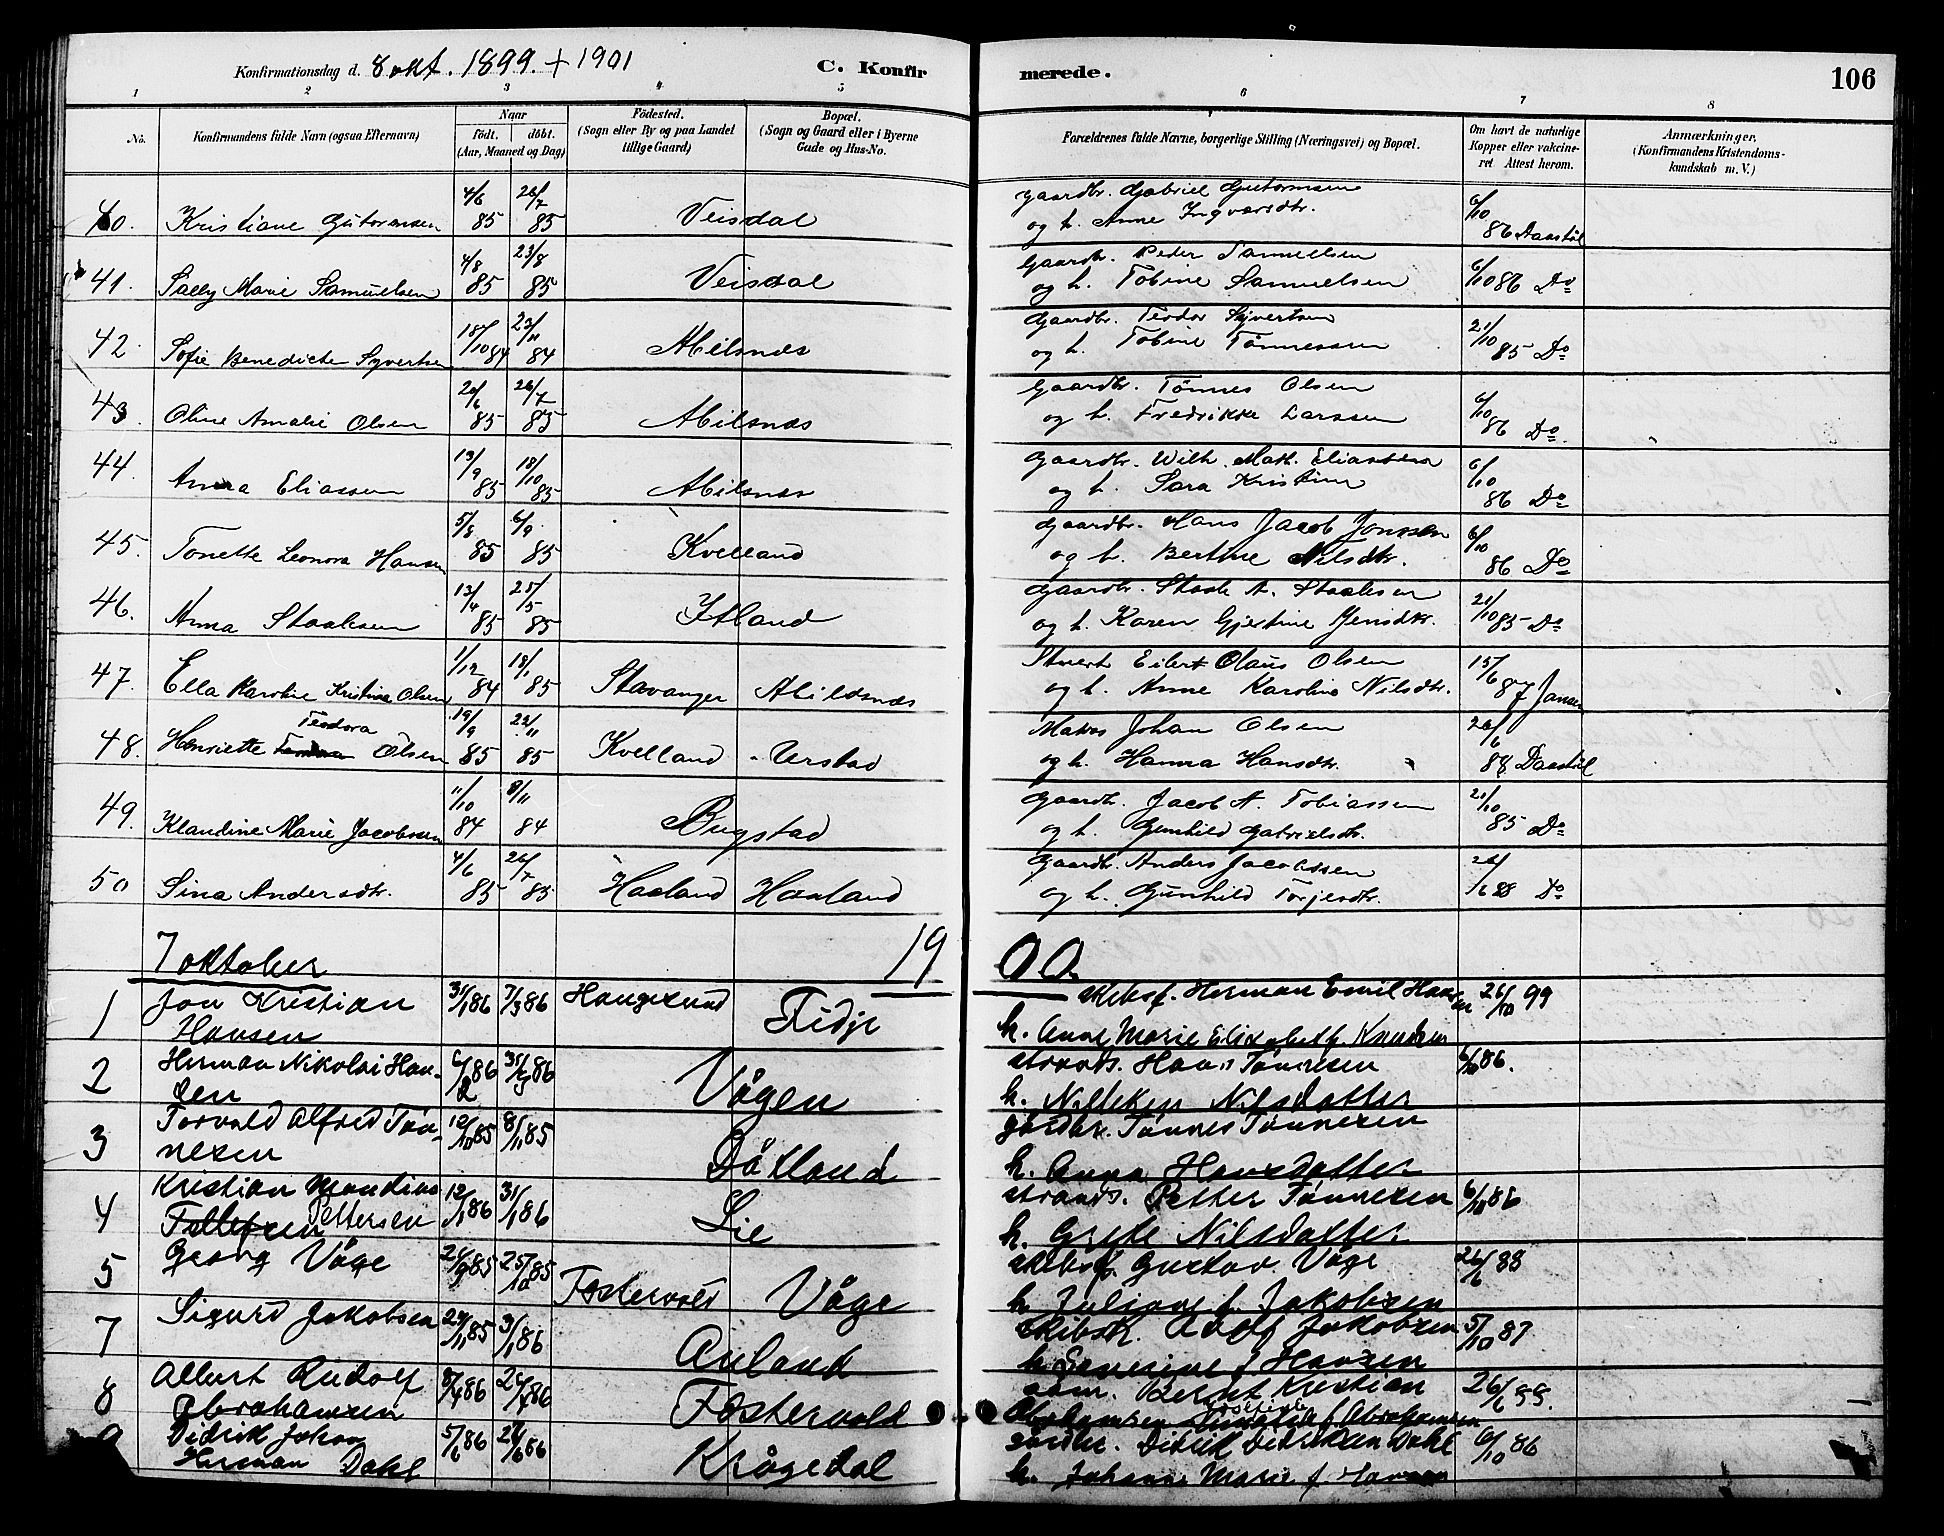 Konfirmationsdag d. 8 okt. 1899. + 1901 C. Konfir merede. 106
1 2 3 4 5 6 7 8
No. Konfirmandens fulde Navn (ogsaa Efternavn) Naar födt. döbt. (Aar, Maaned og Dag) Födested. (Sogn eller By og paa Landet tillige Gaard) Bopæl. (Sogn og Gaard eller i Byerne Gade og Hus-No. Forældrenes fulde Navne, borgerlige Stilling (Næringsvei) og Bopæl. Om havt de naturlige Kopper eller vakcineret. Attest herom. Anmærkninger, (Konfirmandens Kristendomskundskab m. V.)
40. Kristiane Gutormsen 4/6 85 26/7 85 Veisdal gaardbr. Gabriel Gutormsen
og h. Anne Ingvarsdtr. 6/10 86 Daastöl
41. Sally Marie Samuelsen 4/8 85 23/8 85 Veisdal Gaardbr. Peder Samuelsen
og h. Tobine Samuelsen 6/10 86 Do
42. Sofie Benedicte Syvertsen 18/10 84 23/11 84 Abilsnæs Gaardbr. Teodor Syvertsen
og h. Tobine Tönnessen 21/10 85 Do
43. Oline Amalie Olsen 20/6 85 26/7 85 Abilsnæs Gaardbr. Tönnes Olsen
og h. Fredrikke Larssen 6/10 86 Do.
44. Anna Eliassen 13/9 85 18/10 85 Abilsnæs Gaardbr. Wilh. Math. Eliassen
og h. Sara Kristine 6/10 86 Do
45. Tonette Leonora Hansen 5/8 85 6/9 85 Kvelland Gaardbr. Hans Jacob Jonssen
og h. Bertine Nilsdtr. 6/10 86 Do
46. Anna Staalesen 13/4 85 25/5 85 Itland Gaardbr. Staale A. Staalesen
og h. Karen Gjertine Jensdtr. 21/10 85 Do
47. Ella Karoline Kristine Olsen 1/12 84 18/1 85 Stavanger Abildsnæs Stuert Eilert Olaus Olsen
og h. Anne Karoline Nilsdtr. 15/6 87 Jansen
48. Henriette Teodora Olsen 19/9 85 22/11 85 Kvelland Urstad Matros Johan Olsen
og h. Hanna Hansdtr. 26/6 88 Daastöl
49. Klaudine Marie Jacobssen 11/10 84 9/11 84 Bugstad Gaardbr. Jacob A. Tobiassen
og h. Gunhild Gabrielsdtr. 21/10 85 Do
50 Sina Andersdtr. 4/6 85 26/7 85 Haaland Haaland Gaardbr. Anders Jacobssen
og h. Gunhild Torjesdtr. 26/6 88 Do
7 oktober 19 00.
1 Jon Kristian
Hansen 31/1 86 7/3 86 Haugesund Fidje skibsf. Herman Emil Hansen
h. Anne Marie Elisabeth f. Knudsen 26/10 99
2 Herman Nikolai Han-
sen Vågen strands. Hans Tönnesen
h. Nilleken Nilsdatter 6/10 86.
3 Torvald Alfred Tön-
nesen 12/10 85 8/11 85 Dåtland gårdbr. Tönnes Tönnesen
h. Anna Hansdatter
4 Kristian Mandius
Pettersen 12/1 86 31/1 86 Lie strands. Petter Tönnesen
h. Grete Nilsdatter 6/10 86
5 Georg Våge 24/9 85 25/10 85 Fostervold Våge skibsf. Gustav Våge
h. Juliane f. Jakobsen 26/6 88
7 Sigurd Jakobsen 29/11 85 3/1 86 Auland skibstr. Adolf Jakobsen
h. f. Hansen 5/10 87
8 Albert Rudolf
Abrahamsen Fostervold søm. Bernt Kristian
Abrahamsen Josefine f. Abrahamsen
9 Didrik Johan
Herman Dahl 5/6 86 Krågedal gårdbr. Didrik Didriksen Dahl
h. Johanne Marie f. Hansen 6/10 86